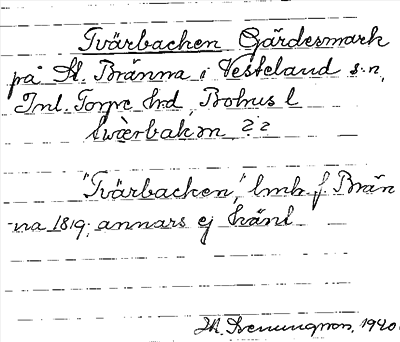 Tvärbacken Gärdesmark
på St. Bränna i Västeland s:n,
Inl. Torpe hd, Bohus l
twèrbakɷn ??
"Tvärbacken," lmh f. Brän
-na 1819; annars ej känt
1940.